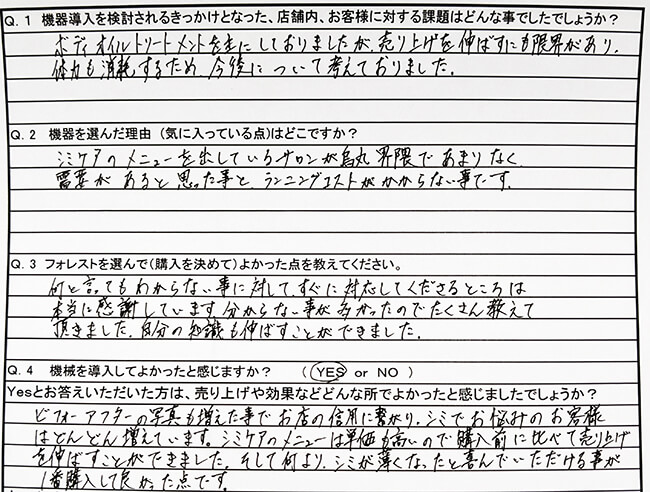 Q. 1 機器導入を検討されるきっかけとなった、店舗内、お客様に対する課題はどんな事でしたでしょうか?
ボディオイルトリートメントを主にしておりましたが、売り上げを伸ばすにも限界があり、
体力も消耗するため、今後について考えておりました。
Q. 2 機器を選んだ理由 (気に入っている点)はどこですか?
シミケアのメニューを出しているサロンが烏丸界隈であまりなく、
需要があると思った事と、ランニングコストがかからない事です。
Q. 3 フォレストを選んで(購入を決めて)よかった点を教えてください。
何と言ってもわからない事に対して、すぐに対応してくださるところは
本当に感謝しています。分からない事が多かったのでたくさん教えて
頂きました。自分の知識も伸ばすことができました。
Q. 4 機械を導入してよかったと感じますか? ( YES or NO )
Yesとお答えいただいた方は、売り上げや効果などどんな所でよかったと感じましたでしょうか?
ビフォーアフターの写真も増えた事でお店の信用に繋がり、シミでお悩みのお客様
はどんどん増えています。シミケアのメニューは単価も高いので購入前に比べて売り上げ
を伸ばすことができました。そして何より、シミが薄くなったと喜んでいただける事が
1番購入して良かった点です。